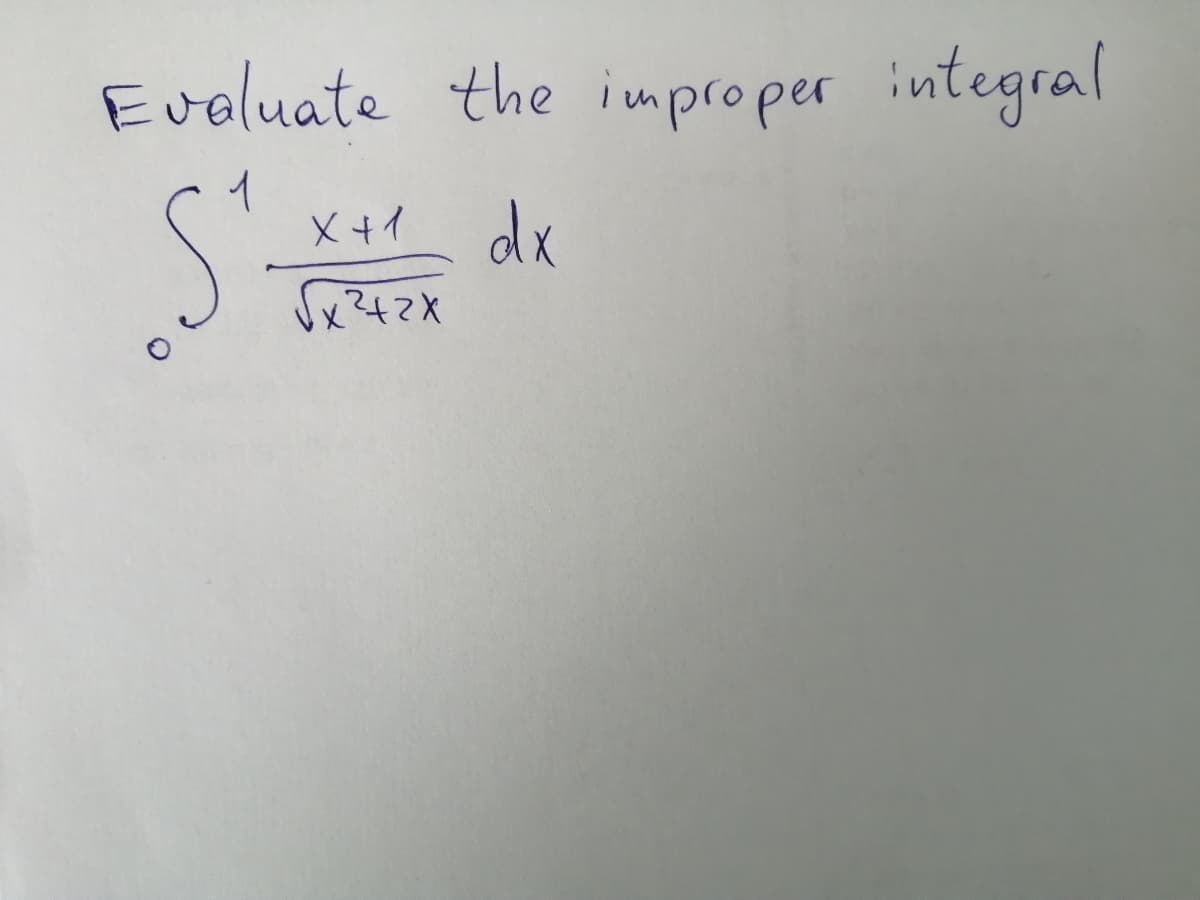 Evaluate the improper integral
∫₀¹ (x+1)/√(x²+2x) dx